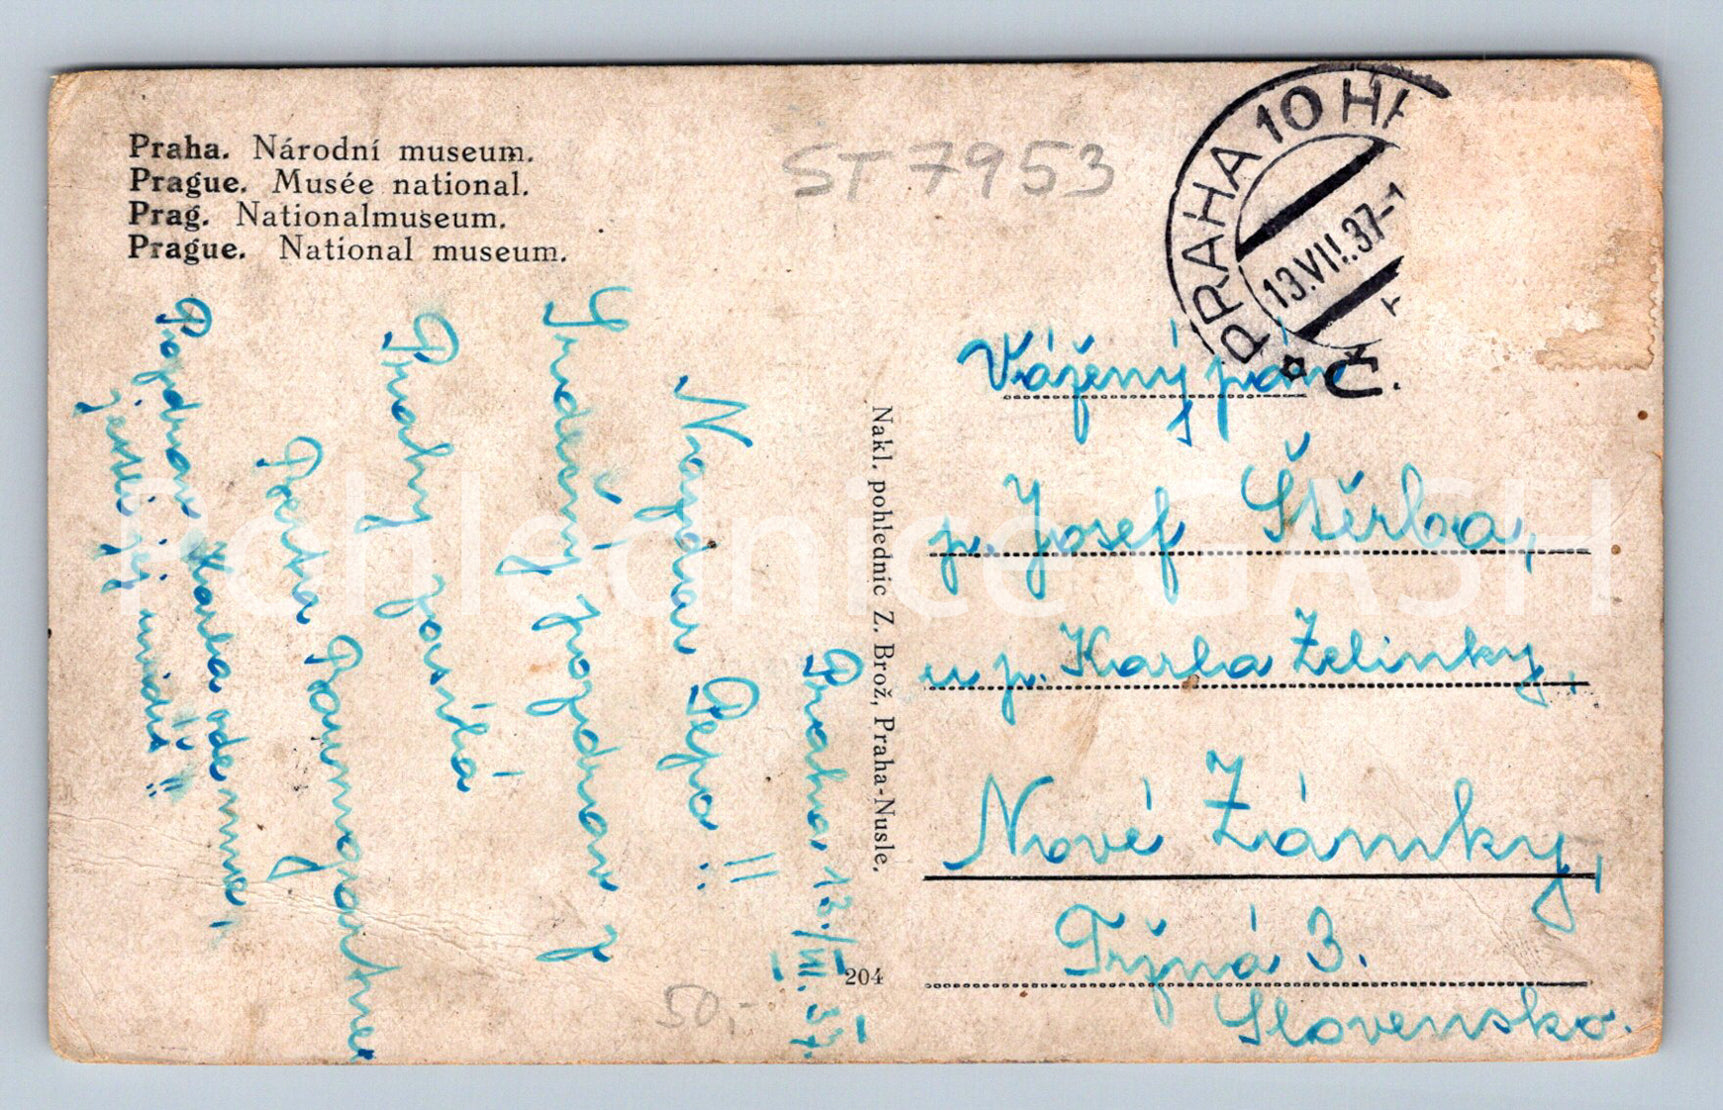 Praha. Národní museum.
Prague. Musée national.
Prag. Nationalmuseum.
Prague. National museum.
ST 7953
PRAHA 10 HR
13.VII.37-1
Č.
Praha 13./VII.37.
Nazdar Pepo!!
Srdečný pozdrav z
Prahy zasílá
Berta Baumgartner
Pozdrav Karla ode mne,
jestli jej uvidíš!!
50,-
Nakl. pohlednic Z. Brož, Praha-Nusle.
204
Vážený pán
p. Josef Štěrba,
u p. Karla Zelinky,
Nové Zámky,
Tržná 3.
Slovensko.
Pohlednice GASH